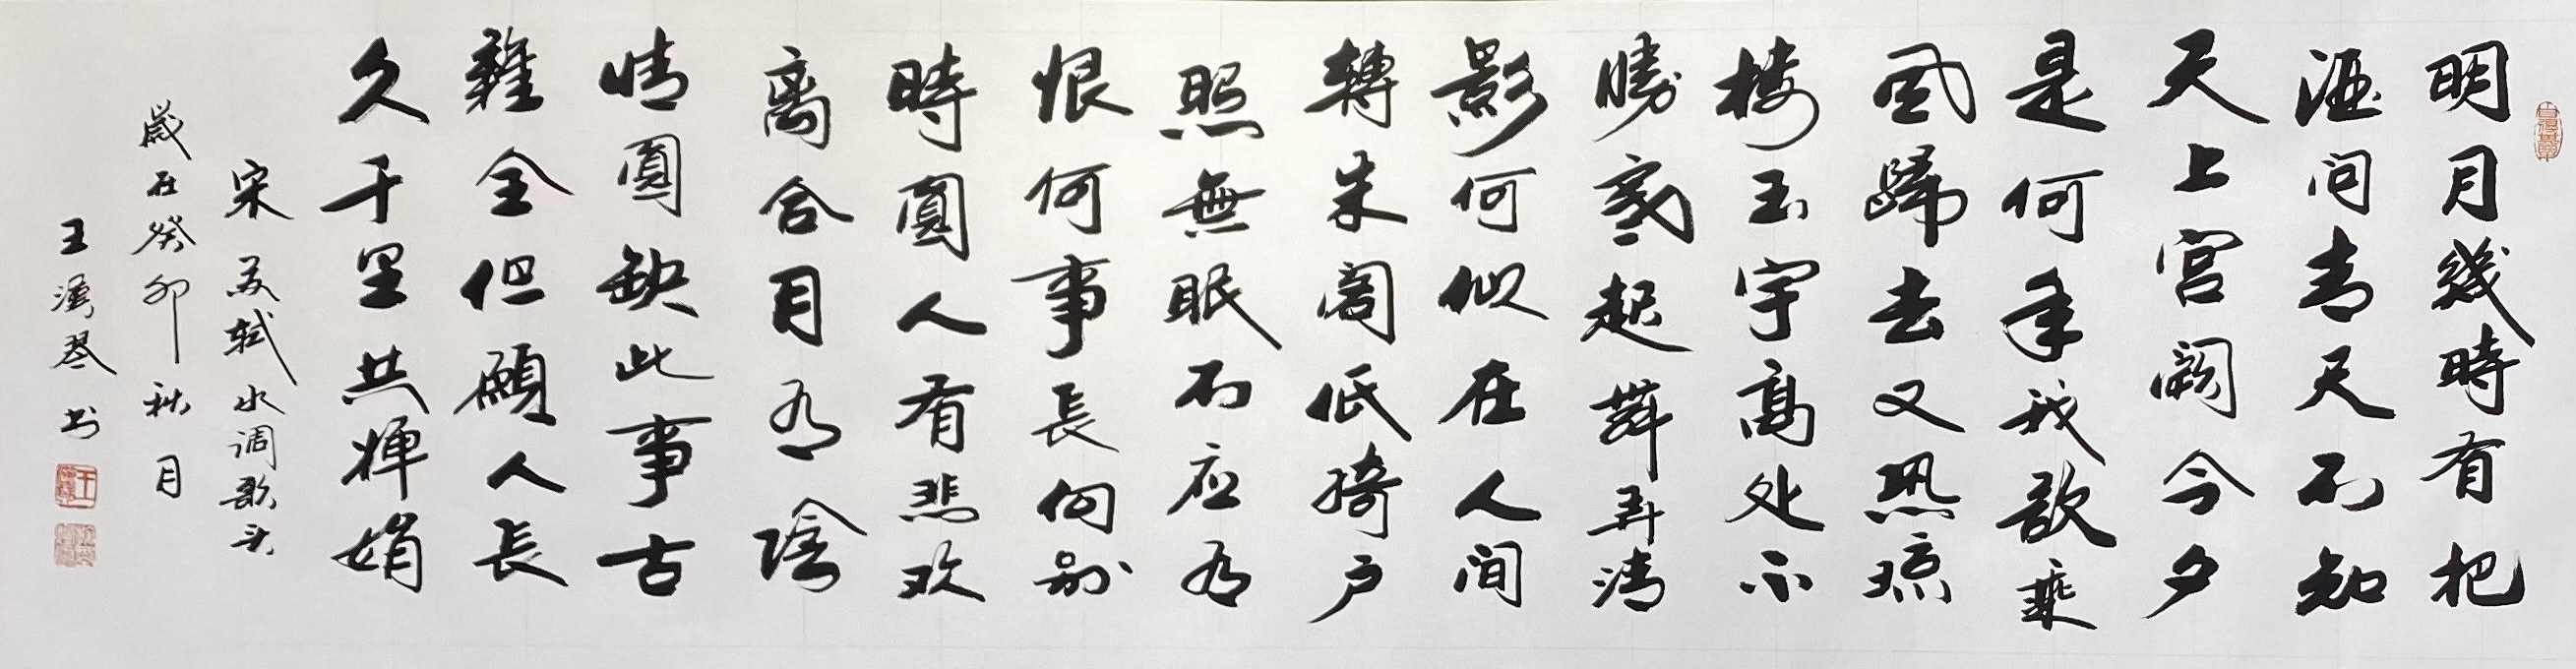 明月幾時有把
酒问青天不知
天上宫阙今夕
是何年我欲乘
風歸去又恐琼
楼玉宇高处不
勝寒起舞弄清
影何似在人间
轉朱阁低绮户
照無眠不应有
恨何事長向别
時圓人有悲欢
离合月有陰
晴圓缺此事古
難全但願人長
久千里共婵娟
宋苏轼水调歌头
歲在癸卯秋月
王琴书